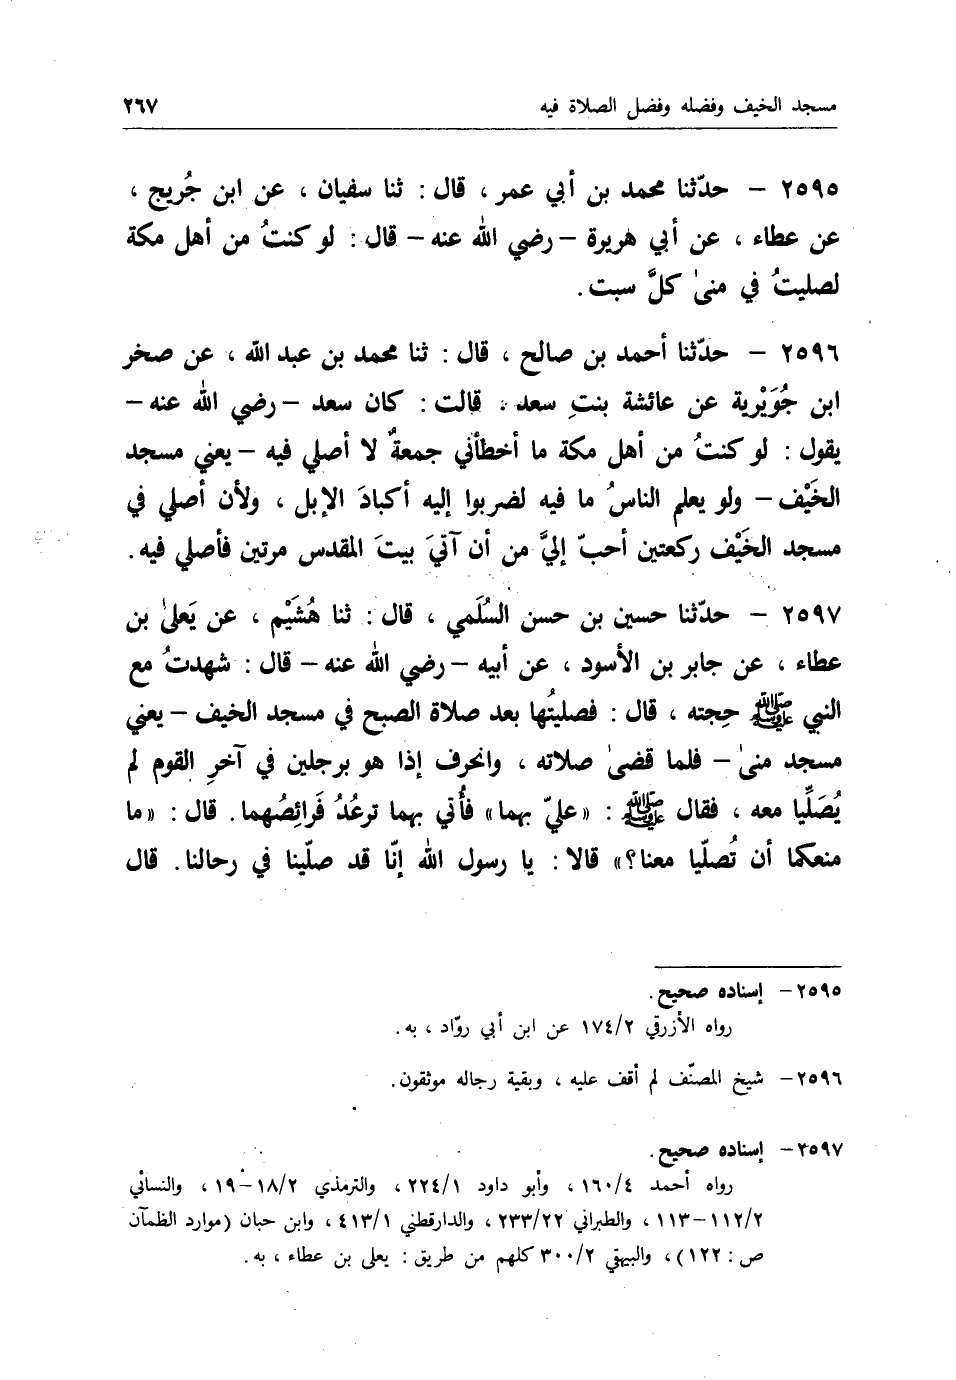 مسجد الخيف وفضله وفضل الصلاة فيه ٢٦٧
٢٥٩٥ – حدّثنا محمد بن أبي عمر ، قال : ثنا سفيان ، عن ابن جُريج ،
عن عطاء ، عن أبي هريرة – رضي الله عنه – قال : لو كنتُ من أهل مكة
لصليتُ في منىٰ كلَّ سبت .
٢٥٩٦ – حدّثنا أحمد بن صالح ، قال : ثنا محمد بن عبد الله ، عن صخر
ابن جُوَيْرية عن عائشة بنتِ سعد ، قالت : كان سعد – رضي الله عنه –
يقول : لو كنتُ من أهل مكة ما أخطأني جمعةٌ لا أصلي فيه – يعني مسجد
الخَيْف – ولو يعلم الناسُ ما فيه لضربوا إليه أكبادَ الإبل ، ولأن أصلي في
مسجد الخَيْف ركعتين أحبّ إليَّ من أن آتيَ بيتَ المقدس مرتين فأصلي فيه .
٢٥٩٧ – حدّثنا حسين بن حسن السُلَمي ، قال : ثنا هُشَيْم ، عن يَعلىٰ بن
عطاء ، عن جابر بن الأسود ، عن أبيه – رضي الله عنه – قال : شهدتُ مع
النبي ﷺ حِجته ، قال : فصليتُها بعد صلاة الصبح في مسجد الخيف – يعني
مسجد منىٰ – فلما قضىٰ صلاته ، وانحرف إذا هو برجلين في آخرِ القوم لم
يُصَلِّيا معه ، فقال ﷺ : «عليّ بهما» فأُتي بهما ترعُدُ فَرائِصُهما . قال : «ما
منعكما أن تُصلّيا معنا؟» قالا : يا رسول الله إنّا قد صلّينا في رحالنا . قال
٢٥٩٥– إسناده صحيح .
رواه الأزرقي ١٧٤/٢ عن ابن أبي روّاد ، به .
٢٥٩٦– شيخ المصنّف لم أقف عليه ، وبقية رجاله موثقون .
٢٥٩٧– إسناده صحيح .
رواه أحمد ١٦٠/٤ ، وأبو داود ٢٢٤/١ ، والترمذي ١٨/٢–١٩ ، والنسائي
١١٢/٢–١١٣ ، والطبراني ٢٣٣/٢٢ ، والدارقطني ٤١٣/١ ، وابن حبان (موارد الظمآن
ص : ١٢٢) ، والبيهقي ٣٠٠/٢ كلهم من طريق : يعلى بن عطاء ، به .